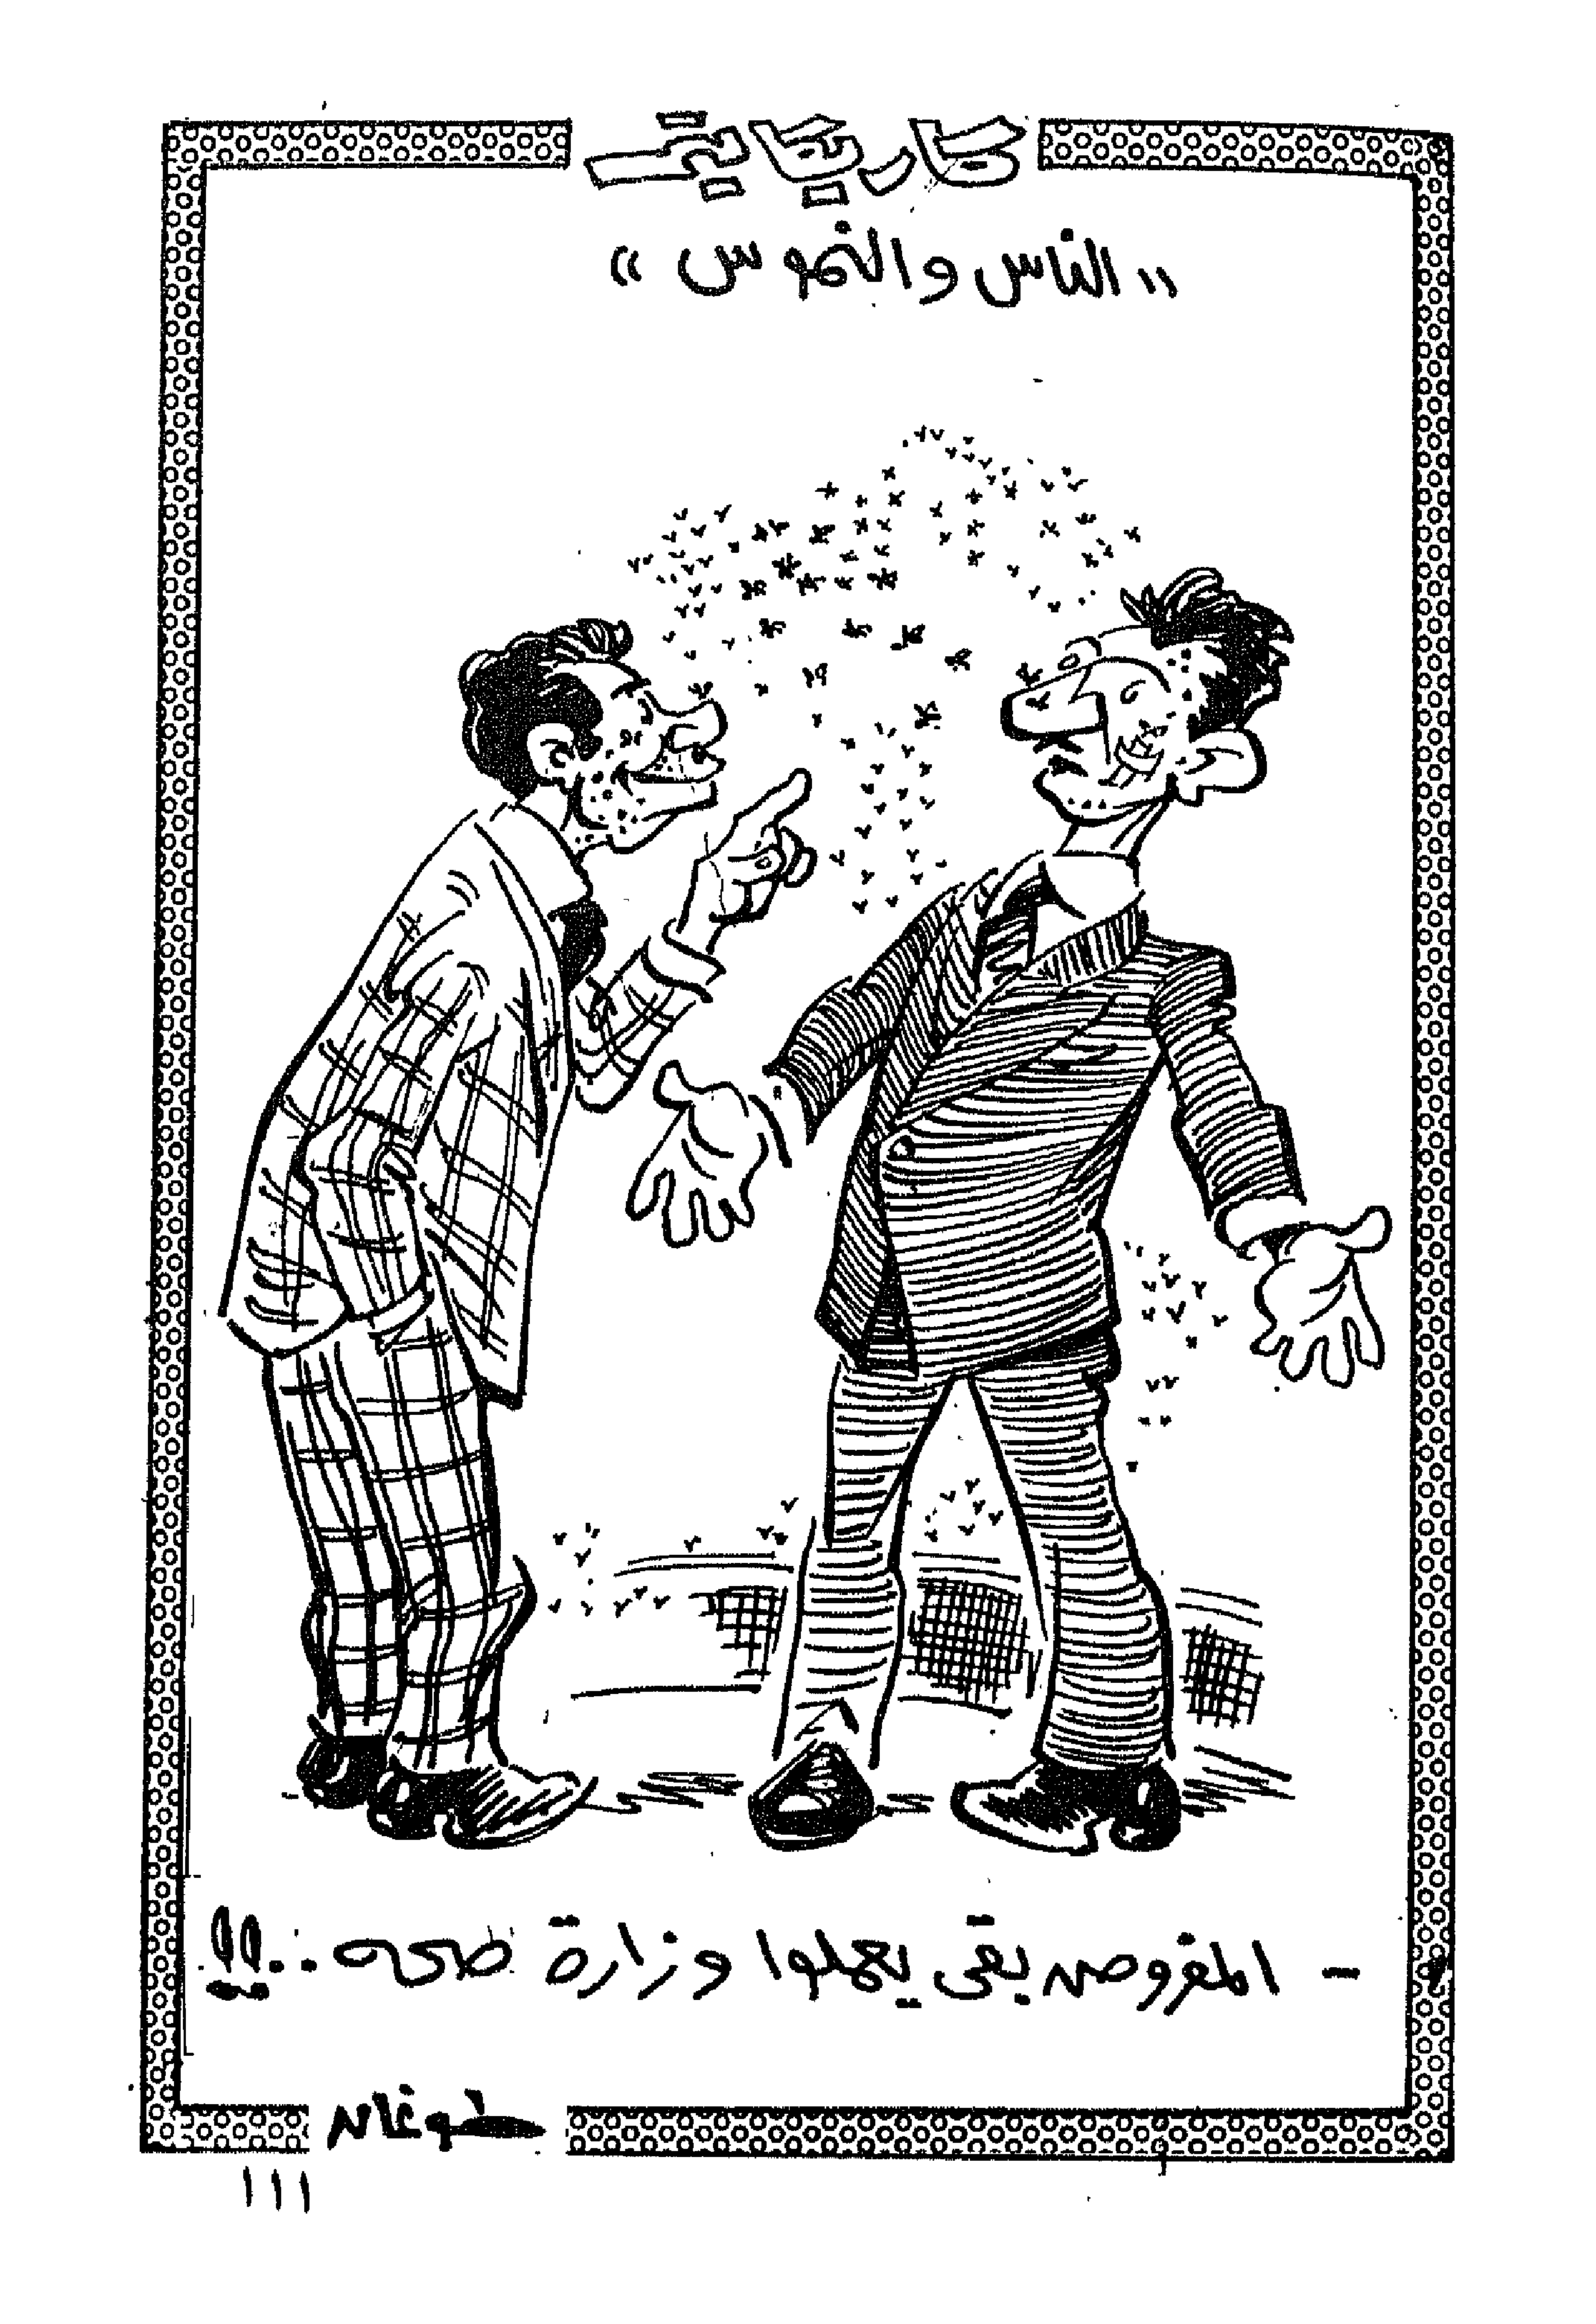 كاريكاتير
"الناس والنموس"
- المفروض بقى يعملوا وزارة صحه..!!
طوغان
١١١